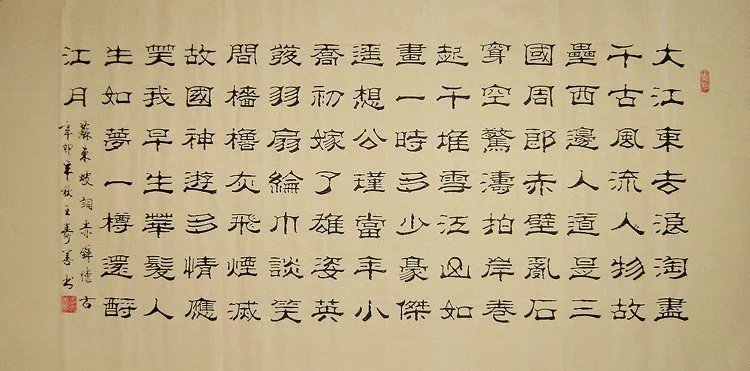 大江東去浪淘盡
千古風流人物故
壘西邊人道是三
國周郎赤壁亂石
穿空驚濤拍岸卷
起千堆雪江山如
畫一時多少豪傑
遙想公瑾當年小
喬初嫁了雄姿英
發羽扇綸巾談笑
間檣櫓灰飛煙滅
故國神遊多情應
笑我早生華髮人
生如夢一樽還酹
江月
蘇東坡詞赤壁懷古
辛卯年秋王壽善書